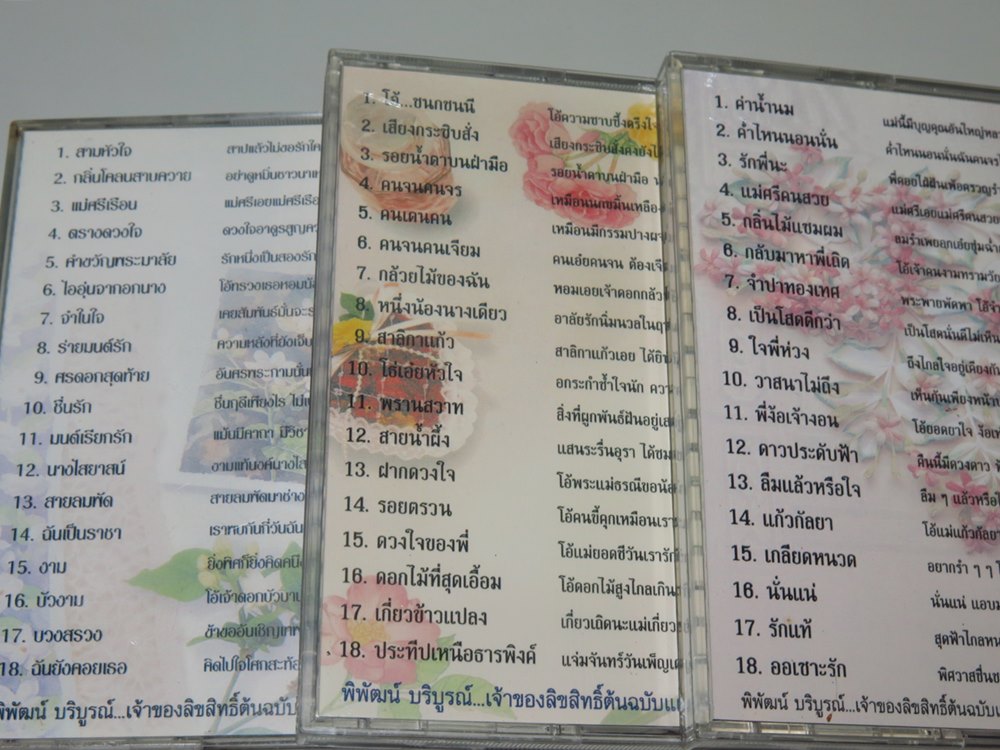 1. สามหัวใจ สาปแล้วไม่ขอรัก
2. กลิ่นโคลนสาบควาย อย่าดูหมิ่นชาวนา
3. แม่ศรีเรือน แม่ศรีเอยแม่ศรีเรือ
4. ตรางดวงใจ ดวงใจอาดูรสูญ
5. คำขวัญพระมาลัย รักหนึ่งเป็นสองรัก
6. ไออุ่นจากอกนาง
7. จำในใจ เคยสัมพันธ์มั่น
8. ร่ายมนต์รัก ความหลังที่ยัง
9. ศรดอกสุดท้าย
10. ชื่นรัก ชื่นฤดีเพียงไร
11. มนต์เรียกรัก แม้นมีคาถา
12. นางไสยาสน์ งามแท้นงค์นาง
13. สายลมพัด สายลมพัดมา
14. ฉันเป็นราชา เราพบกันที่วัน
15. งาม ยิ่งพิศก็ยิ่งคิด
16. บัวงาม โอ้เจ้าดอกบัวบาน
17. บวงสรวง ข้าขออันเชิญเทพ
18. ฉันยังคอยเธอ คิดไปใจโศกสะท้อ
พิพัฒน์ บริบูรณ์...เจ้าของลิขสิทธิ์ต้นฉบับ
1. โอ้...ชนกชนนี โอ้ความซาบซึ้งตรึงใจ
2. เสียงกระซิบสั่ง เสียงกระซิบสั่งดังยัง
3. รอยน้ำตาบนฝ่ามือ รอยน้ำตาบนฝ่ามือ
4. คนจนคนจร เหมือนนกขมิ้นเหลือง
5. คนเดนคน เหมือนมีกรรมปาง
6. คนจนคนเจียม คนเอ๋ยคนจน ต้อง
7. กล้วยไม้ของฉัน หอมเอยเจ้าดอกกล้ว
8. หนึ่งน้องนางเดียว อาลัยรักนิ่มนวล
9. สาลิกาแก้ว สาลิกาแก้วเอย ได้
10. โธ่เอ๋ยหัวใจ อกระกำช้ำใจนัก
11. พรานสวาท สิ่งที่ผูกพันธ์ฝันอยู่
12. สายน้ำผึ้ง แสนระรื่นอุรา ได้
13. ฝากดวงใจ โอ้พระแม่ธรณีขอ
14. รอยตรวน โอ้คนขี้คุกเหมือนเรา
15. ดวงใจของพี่ โอ้แม่ยอดชีวันเรารัก
16. ดอกไม้ที่สุดเอื้อม โอ้ดอกไม้สูงไกลเกิน
17. เกี่ยวข้าวแปลง เกี่ยวเถิดนะแม่เกี่ยว
18. ประทีปเหนือธารพิงค์ แจ่มจันทร์วันเพ็ญ
พิพัฒน์ บริบูรณ์...เจ้าของลิขสิทธิ์ต้นฉบับ
1. ค่าน้ำนม แม่นี้มีบุญคุณอันใหญ่
2. ค่ำไหนนอนนั่น ค่ำไหนนอนนั่นฉันคน
3. รักพี่นะ พี่คอยไฝ่ฝัน
4. แม่ศรีคนสวย แม่ศรีเอยแม่ศรีคนสวย
5. กลิ่นไม้แซมผม ลมรำเพยดอกเอ๋ย
6. กลับมาหาพี่เถิด โอ้เจ้าคนงามทราม
7. จำปาทองเทศ พระพายพัดพา
8. เป็นโสดดีกว่า เป็นโสดนั่นดีไม่
9. ใจพี่ห่วง ถึงไกลใจอยู่เคียง
10. วาสนาไม่ถึง เห็นกันเพียงหน้า
11. พี่ง้อเจ้างอน โอ้ยอดยาใจ
12. ดาวประดับฟ้า คืนนี้มีดวงดาว
13. ลืมแล้วหรือใจ ลืม ๆ แล้วหรือ
14. แก้วกัลยา โอ้แม่แก้วกัลยา
15. เกลียดหนวด อยากรำ ๆ ๆ
16. นั่นแน่ นั่นแน่ แอบ
17. รักแท้ สุดฟ้าไกล
18. ออเซาะรัก พิศวาสชื่น
พิพัฒน์ บริบูรณ์...เจ้าของลิขสิทธิ์ต้น